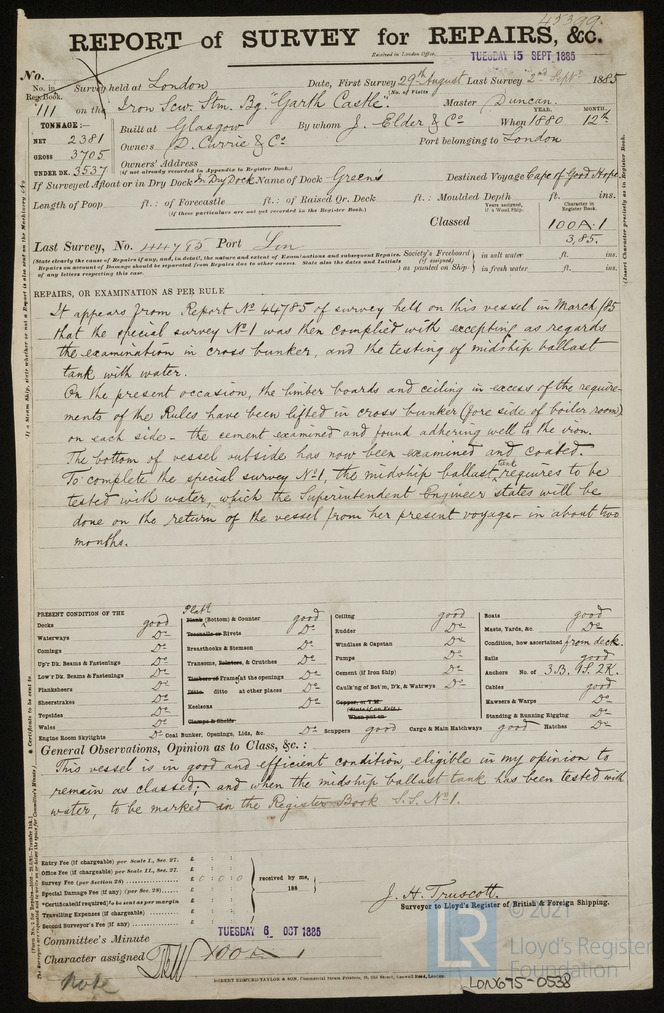 45399.
REPORT of SURVEY for REPAIRS, &c.
Received in London Office, TUESDAY 15 SEPT 1885
No.
No. in Reg. Book. Survey held at London Date, First Survey 29th August Last Survey 2nd Septr 1885
(No. of Visits)
111 on the Iron Scw. Stm. Bg. "Garth Castle". Master Duncan.
TONNAGE:— YEAR. MONTH.
NET 2381 Built at Glasgow By whom J. Elder & Co When 1880 12th
GROSS 3705 Owners D. Currie & Co Port belonging to London
UNDER DK. 3537 Owners' Address
(if not already recorded in Appendix to Register Book.)
If Surveyed Afloat or in Dry Dock In Dry Dock Name of Dock Green's Destined Voyage Cape of Good Hope
Length of Poop ft.: of Forecastle ft.: of Raised Qr. Deck ft.: Moulded Depth ft. ins.
(if these particulars are not yet recorded in the Register Book.)
Years assigned, if a Wood Ship. Character in Register Book.
Classed 100 A.1
3,85.
Last Survey, No. 44785 Port Lon
(State clearly the cause of Repairs if any, and, in detail, the nature and extent of Examinations and subsequent Repairs.
Repairs on account of Damage should be separated from Repairs due to other causes. State also the dates and Initials
of any letters respecting this case.
Society's Freeboard (if assigned) as painted on Ship
in salt water ft. ins.
in fresh water ft. ins.
REPAIRS, OR EXAMINATION AS PER RULE
It appears from Report No 44785 of survey held on this vessel in March/85
that the special survey No 1 was then complied with excepting as regards
the examination in cross bunker, and the testing of midship ballast
tank with water.
On the present occasion, the limber boards and ceiling in excess of the require-
ments of the Rules have been lifted in cross bunker (fore side of boiler room)
on each side – the cement examined and found adhering well to the iron.
The bottom of vessel outside has now been examined and coated.
To complete the special survey No 1, the midship ballast tank requires to be
tested with water, which the Superintendent Engineer states will be
done on the return of the vessel from her present voyage – in about two
months.
PRESENT CONDITION OF THE
Decks good
Waterways Do
Comings Do
Up'r Dk. Beams & Fastenings Do
Low'r Dk. Beams & Fastenings Do
Planksheers Do
Sheerstrakes Do
Topsides Do
Wales Do
Engine Room Skylights Do
Platg
Plank (Bottom) & Counter good
Treenails or Rivets Do
Breasthooks & Stemson Do
Transoms, Pointers, & Crutches Do
Timbers of Frame at the openings Do
Ditto ditto at other places Do
Keelsons Do
Clamps & Shelfs
Coal Bunker, Openings, Lids, &c. Do
Ceiling good
Rudder Do
Windlass & Capstan Do
Pumps Do
Cement (if Iron Ship) Do
Caulk'ng of Bot'm, D'k, & Watrwys Do
Copper, or Y.M.
(State if on Felt.)
When put on
Scuppers good Cargo & Main Hatchways good Hatches Do
Boats good
Masts, Yards, &c. Do
Condition, how ascertained from deck.
Sails good
Anchors No. of 3B. 1S. 2K.
Cables good
Hawsers & Warps Do
Standing & Running Rigging Do
General Observations, Opinion as to Class, &c.:
This vessel is in good and efficient condition, eligible in my opinion to
remain as classed; and when the midship ballast tank has been tested with
water, to be marked in the Register Book S.S. No 1.
Entry Fee (if chargeable) per Scale I., Sec. 27. £ : :
Office Fee (if chargeable) per Scale II., Sec. 27. £ : :
Survey Fee (per Section 28) £ 0 : 0 : 0 received by me,
Special Damage Fee (if any) (per Sec. 28) £ : : 188
*Certificate (if required) to be sent as per margin £ : :
Travelling Expenses (if chargeable) £ : :
Second Surveyor's Fee (if any) £ : :
J. H. Truscott.
Surveyor to Lloyd's Register of British & Foreign Shipping.
Committee's Minute TUESDAY 6 OCT 1885
Character assigned 100 A 1
Note
ROBERT EDMUND TAYLOR & SON, Commercial Steam Printers, 19, Old Street, Goswell Road, London.
LR
© 2021
Lloyd's Register
Foundation
LON695-0538
(Insert Character precisely as in Register Book.